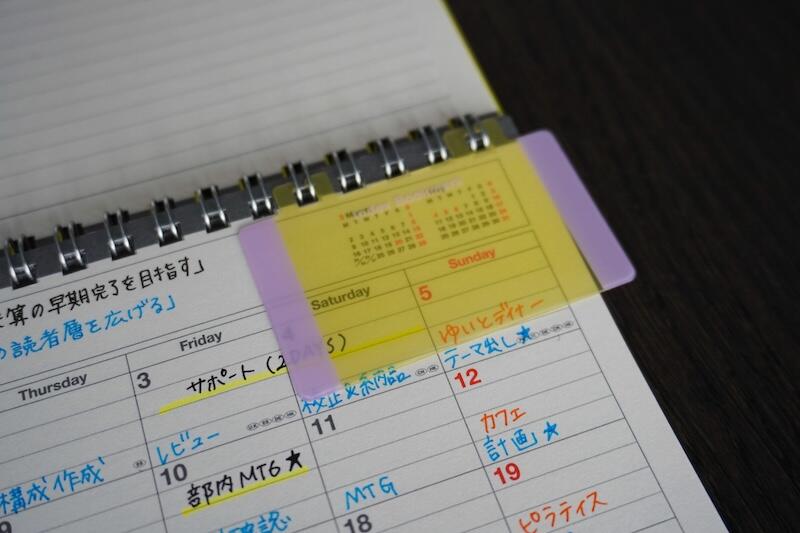 算の早期完了を目指す」
の読者層を広げる」
Thursday
Friday
Saturday
Sunday
3
4
5
サポート(2DAYS)
ゆいとディナー
レビュー
校正&納品
テーマ出し★
構成作成
10
11
12
部内MTG★
カフェ
MTG
計画★
9
確認
18
19
ピラティス